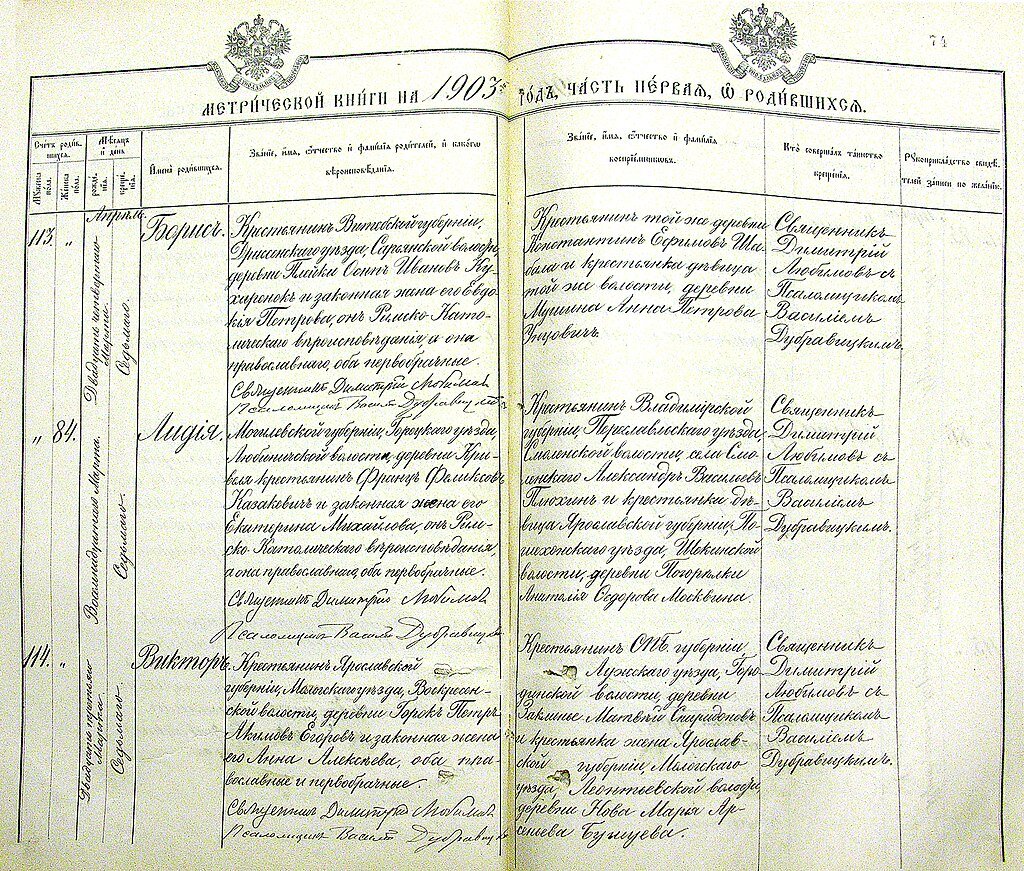 74
МЕТРИЧЕСКОЙ КНИГИ НА 1903й ГОДЪ, ЧАСТЬ ПЕРВАЯ, Ѡ РОДИВШИХСЯ.
Счетъ родив-
шихся.
Мужеска
пола.
Женска
пола.
Мѣсяцъ
и день
рожде-
нія.
креще-
нія.
Имена родившихся.
Званіе, имя, отчество и фамилія родителей, и какого
вѣроисповѣданія.
Званіе, имя, отчество и фамилія
воспріемниковъ.
Кто совершалъ таинство
крещенія.
Рукоприкладство свидѣ-
телей записи по желанію.
Апрѣль.
113.
"
Двадцать четвертаго
Марта.
Седьмаго.
Борисъ.
Крестьянинъ Витебской губерніи,
Дриссенскаго уѣзда, Сарьянской волости,
деревни Плейки Осипъ Ивановъ Ку-
харенокъ и законная жена его Евдо-
кія Петрова, онъ Римско-Като-
лическаго вѣроисповѣданія, а она
православнаго, оба первобрачные.
Священникъ Димитрій Любимовъ
Псаломщикъ Василій Дубравицкій
Крестьянинъ той же деревни
Константинъ Ефимовъ Ша-
бала и крестьянка дѣвица
той же волости, деревни
Анна Петрова
Священникъ
Димитрій
Любимовъ съ
Псаломщикомъ
Василіемъ
Дубравицкимъ.
"
84.
Восемнадцатаго Марта.
Седьмаго.
Лидія.
Могилевской губерніи, Горецкаго уѣзда,
Любиничской волости, деревни Кри-
веля крестьянинъ Францъ Феликсовъ
Казакевичъ и законная жена его
Екатерина Михайлова, онъ Рим-
ско-Католическаго вѣроисповѣданія,
а она православнаго, оба первобрачные.
Священникъ Димитрій Любимовъ
Псаломщикъ Василій Дубравицкій
Крестьянинъ Владимірской
губерніи, Переславльскаго уѣзда,
Смоленской волости, села Смо-
ленскаго Александръ Васильевъ
Плюхинъ и крестьянка дѣ-
вица Ярославской губерніи, По-
шехонскаго уѣзда, Щекинской
волости, деревни Погорѣлки
Анатолія Ѳедорова Москвина.
Священникъ
Димитрій
Любимовъ съ
Псаломщикомъ
Василіемъ
Дубравицкимъ.
114.
"
Двадцать третьяго
Марта.
Седьмаго
Викторъ.
Крестьянинъ Ярославской
губерніи, Мологскаго уѣзда, Воскресен-
ской волости, деревни Горокъ Петръ
Акимовъ Егоровъ и законная жена
его Анна Алексѣева, оба пра-
вославные и первобрачные.
Священникъ Димитрій Любимовъ
Псаломщикъ Василій Дубравицкій
Крестьянинъ СПБ. губерніи,
Лужскаго уѣзда, Горо-
дунской волости, деревни
Заклинье Матвѣй Спиридоновъ
и крестьянка жена Ярослав-
ской губерніи, Мологскаго
уѣзда, Леонтьевской волости,
деревни Нова Марія Ар-
сеньева
Священникъ
Димитрій
Любимовъ съ
Псаломщикомъ
Василіемъ
Дубравицкимъ.